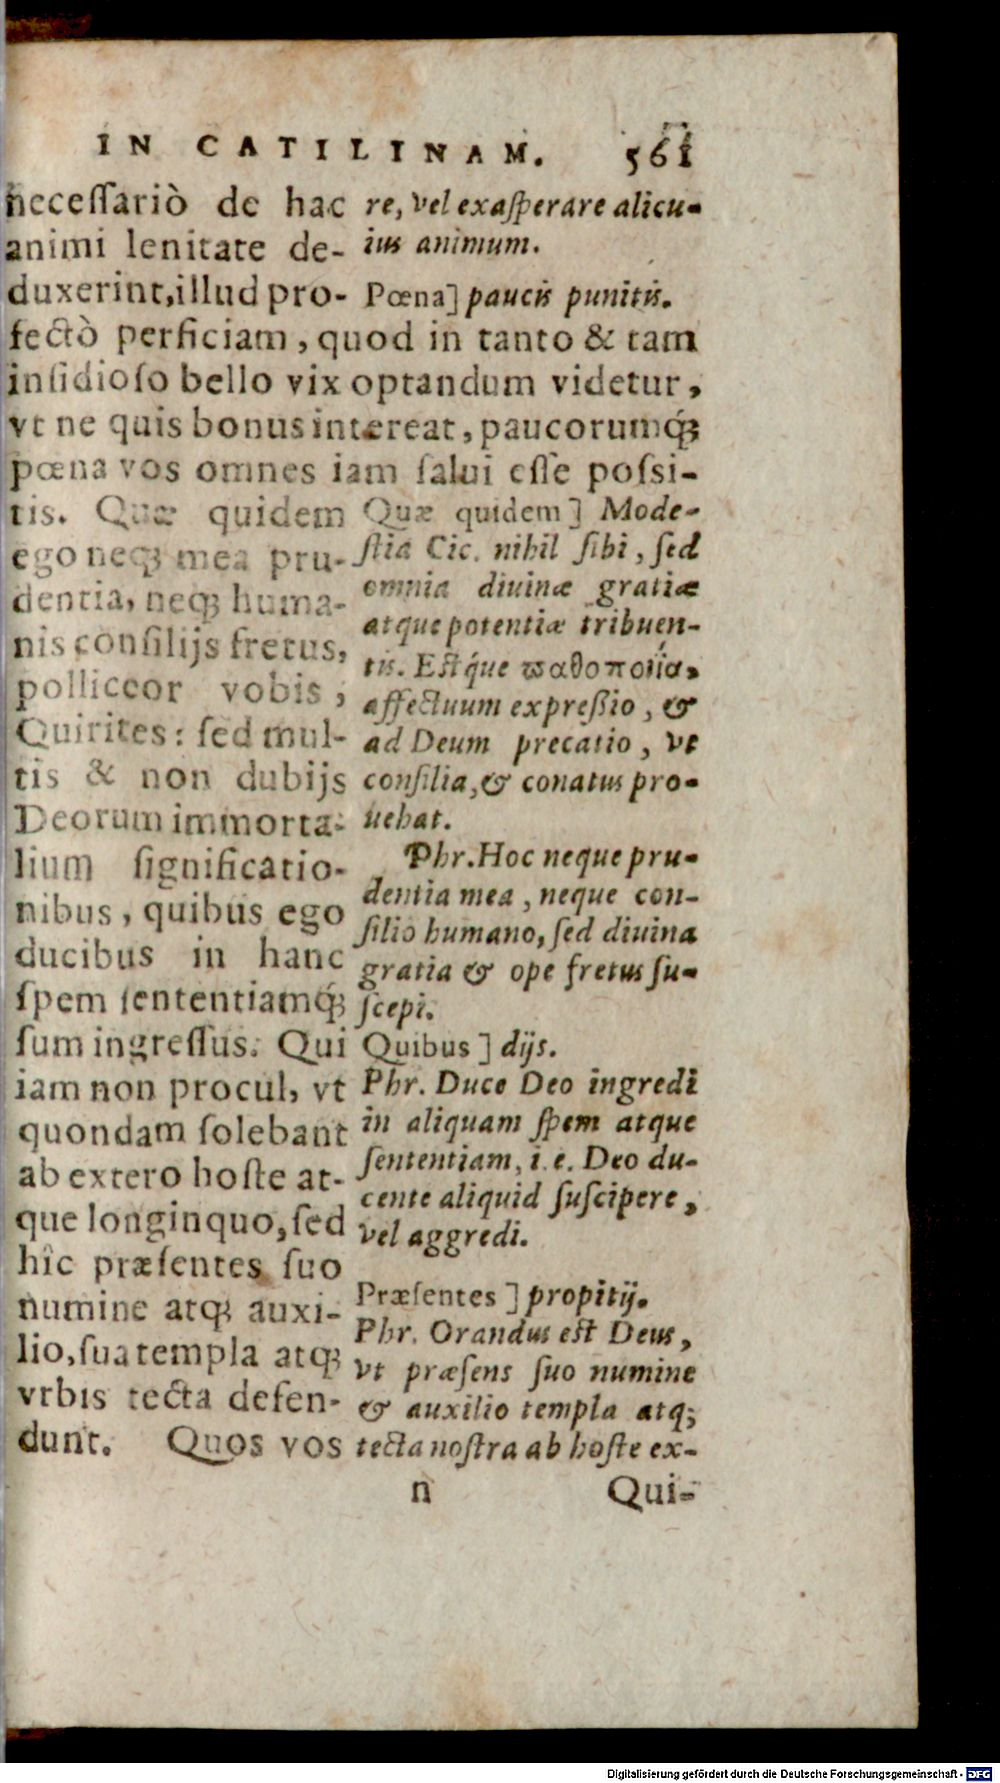 IN CATILINAM. 561
necessariò de hac
animi lenitate de-
duxerint, illud pro-
fectò perficiam, quod in tanto & tam
insidioso bello vix optandum videtur,
vt ne quis bonus intereat, paucorumq́;
pœna vos omnes iam salui esse possi-
tis. Quæ quidem
ego neq; mea pru-
dentia, neq; huma-
nis consilijs fretus,
polliceor vobis,
Quirites: sed mul-
tis & non dubijs
Deorum immorta-
lium significatio-
nibus, quibus ego
ducibus in hanc
spem sententiamq́;
sum ingressus. Qui
iam non procul, vt
quondam solebant
ab extero hoste at-
que longinquo, sed
hîc præsentes suo
numine atq; auxi-
lio, sua templa atq;
vrbis tecta defen-
dunt. Quos vos
re, vel exasperare alicu-
ius animum.
Pœna] paucis punitis.
Quæ quidem] Mode-
stia Cic. nihil sibi, sed
omnia diuinæ gratiæ
atque potentiæ tribuen-
tis. Estq́ue ϖαθοποιία,
affectuum expressio, &
ad Deum precatio, vt
consilia, & conatus pro-
uehat.
Phr. Hoc neque pru-
dentia mea, neque con-
silio humano, sed diuina
gratia & ope fretus su-
scepi.
Quibus] dijs.
Phr. Duce Deo ingredi
in aliquam spem atque
sententiam, i. e. Deo du-
cente aliquid suscipere,
vel aggredi.
Præsentes] propitij.
Phr. Orandus est Deus,
vt præsens suo numine
& auxilio templa atq;
tecta nostra ab hoste ex-
n Qui-
Digitalisierung gefördert durch die Deutsche Forschungsgemeinschaft - DFG